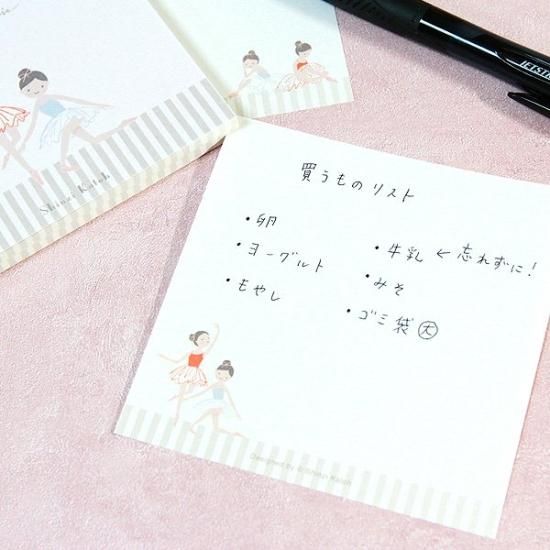 Shinzi Katoh
JETSTR
買うものリスト
・卵
・ヨーグルト
・もやし
・牛乳 ← 忘れずに!
・みそ
・ゴミ袋 大
Designed by Shinzi Katoh